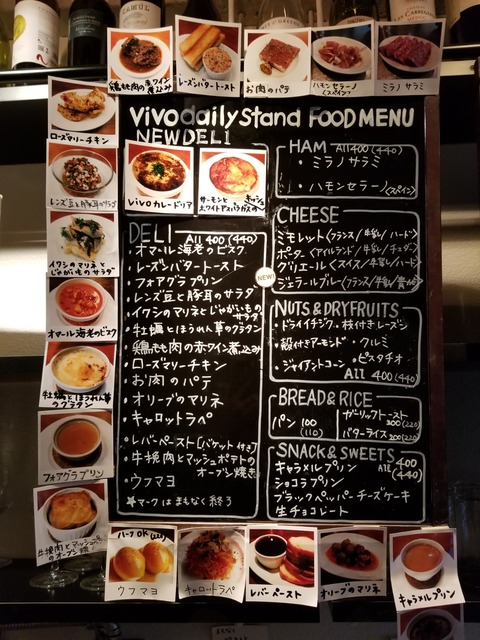 鶏もも肉の赤ワイン煮込み
レーズンバタートースト
お肉のパテ
ハモンセラーノ
(スペイン)
ミラノサラミ
ローズマリーチキン
レンズ豆と豚耳のサラダ
イワシのマリネと
じゃがいものサラダ
オマール海老のビスク
牡蠣とほうれん草の
グラタン
フォアグラプリン
牛挽肉とマッシュポテト
のオーブン焼き
Vivo daily Stand FOOD MENU
NEW DELI
Vivoカレードリア
サーモンと
ホワイトアスパラガスの
DELI All 400 (440)
・オマール海老のビスク
・レーズンバタートースト
・フォアグラプリン
・レンズ豆と豚耳のサラダ
・イワシのマリネとじゃがいもの
サラダ
・牡蠣とほうれん草のグラタン
・鶏もも肉の赤ワイン煮込み
・ローズマリーチキン
・お肉のパテ
・オリーブのマリネ
・キャロットラペ
・レバーペースト[バゲット付き]
・牛挽肉とマッシュポテトの
オーブン焼き
・ウフマヨ
★マークはまもなく終了
NEW!
HAM All 400 (440)
・ミラノサラミ
・ハモンセラーノ(スペイン)
CHEESE
ミモレット(フランス/牛製/ハード)
ポーター(アイルランド/牛製/チェダー)
グリエール(スイス/牛製/ハード)
ジェラールブルー(フランス/牛製/青かび)
NUTS & DRYFRUITS
・ドライイチジク ・枝付きレーズン
・殻付きアーモンド ・クルミ
・ジャイアントコーン ・ピスタチオ
All 400 (440)
BREAD & RICE
パン 100
(110)
ガーリックトースト
200 (220)
バターライス 200 (220)
SNACK & SWEETS
キャラメルプリン All 400
(440)
ショコラプリン
ブラックペッパーチーズケーキ
生チョコレート
ハーフOK
ウフマヨ
キャロットラペ
レバーペースト
オリーブのマリネ
キャラメルプリン